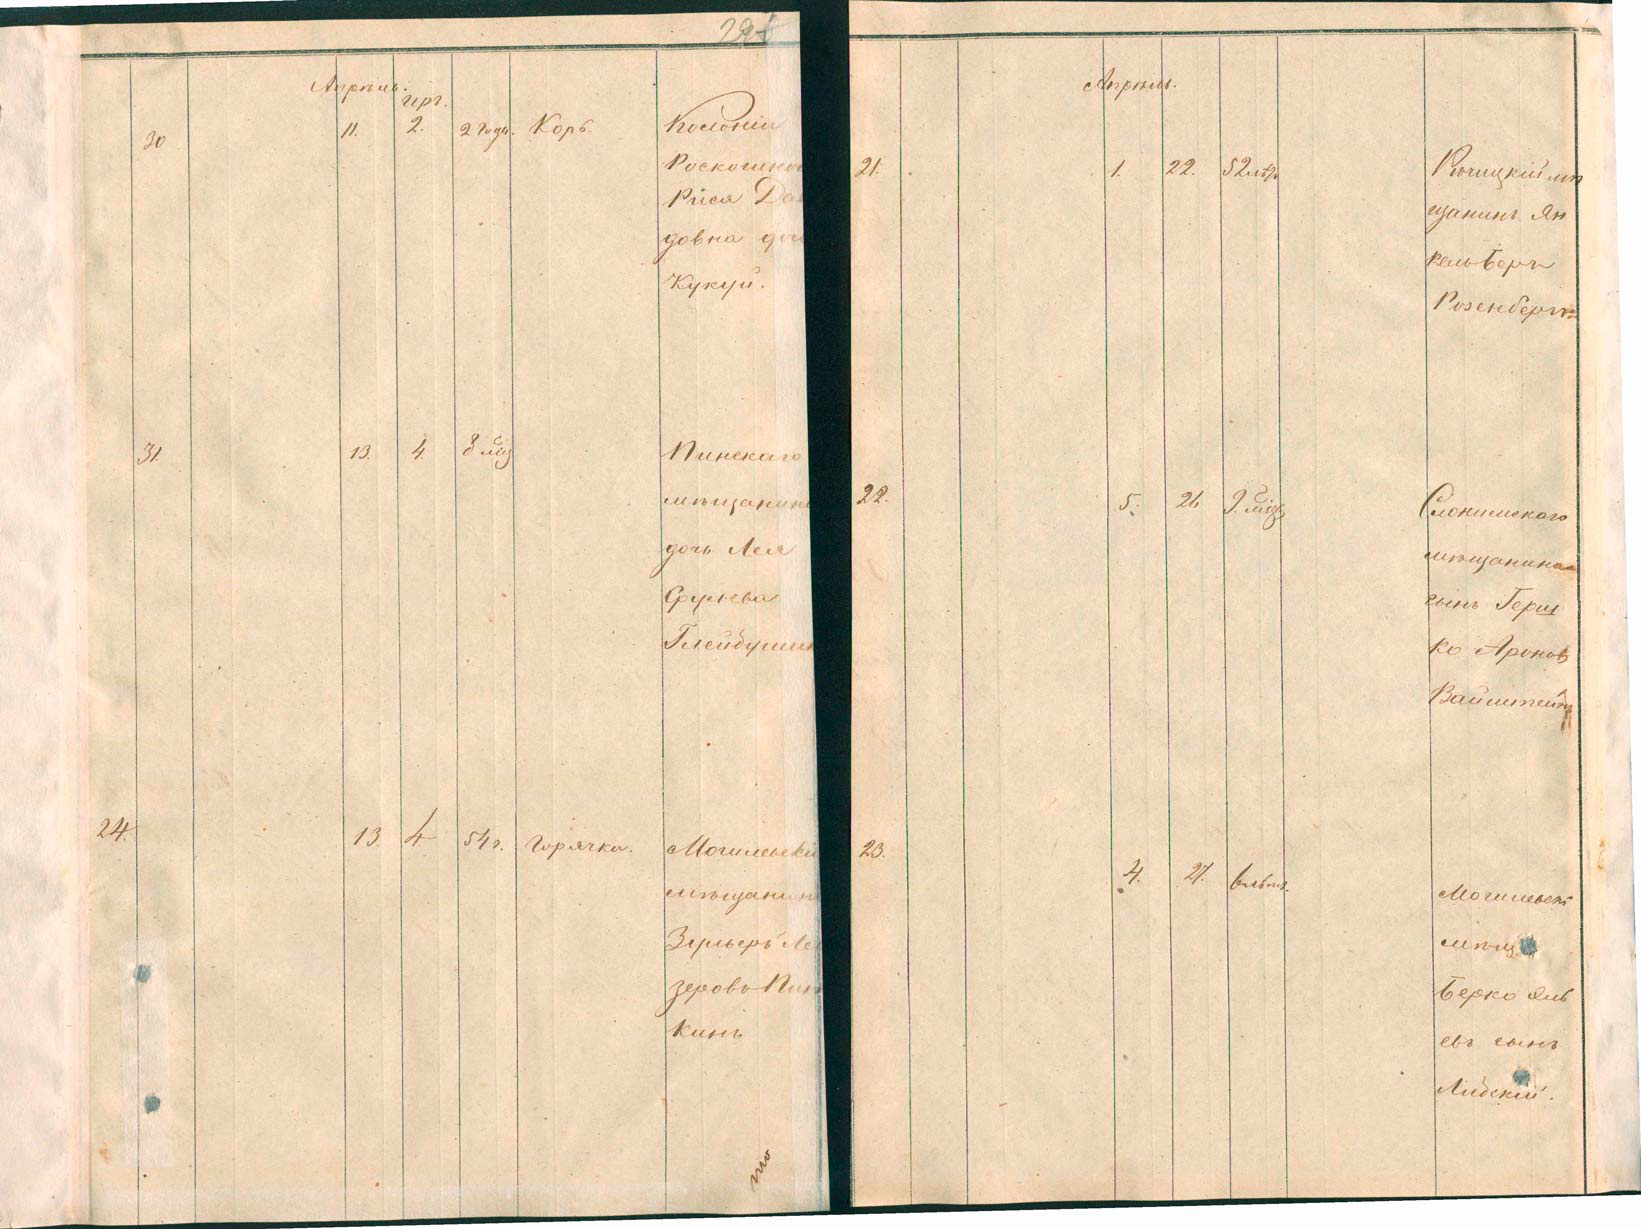 Апрѣль.
ияр.
30 11. 2. 2 года. Корь. Колоніи
Роскошно
Рися Да
довна
Кукуй.
31. 13. 4. 8 мѣс Пинскаго
мѣщанина
дочь Лея
Сруљева
24. 13. 4 54 г. Горячка. Могилевскі
мѣщанин
Зусьеръ Ле
зеровъ Пин
кинъ
Апрѣль.
21. 1. 22. 52 лѣтъ Рѣчицкій мѣ
щанинъ Ян
кель Беръ
Розенбергъ
22. 5. 26 9. мѣс Слонимскаго
мѣщанина
сынъ Герш
ко Аронов
Вайнштейн
23. 4. 27. 6 лѣтъ. Могилевск
мѣщ
Берко
евъ сынъ
Лидскій.